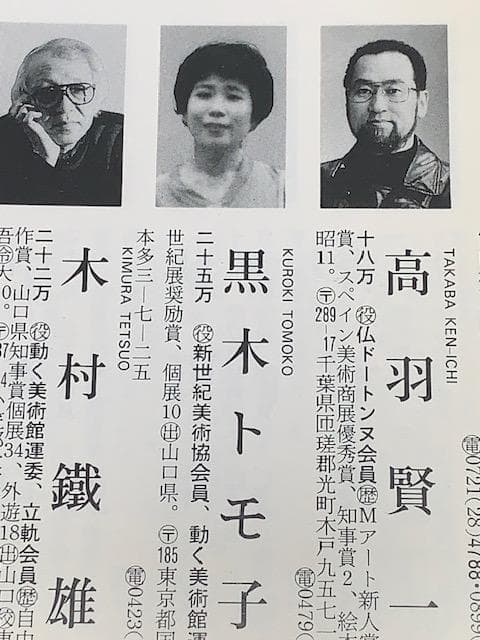 ㊩0721(28)4788・0899(
TAKABA KEN-ICHI
高羽賢一
十八万 ㊝仏ドートンヌ会員㊭Mアート新人賞
賞、スペイン美術商展優秀賞、知事賞2、絵
昭11。〒289-17千葉県匝瑳郡光町木戸九五七一
㊩0479(
KUROKI TOMOKO
黒木トモ子
二十五万 ㊝新世紀美術協会員、動く美術館運
世紀展奨励賞、個展10㊤山口県。〒185東京都国
本多三ー七ー二五
㊩0423(
KIMURA TETSUO
木村鐵雄
二十二万 ㊝動く美術館運委、立軌会員㊭自由
作賞、山口県知事賞個展34、外遊18㊤山口㊫東